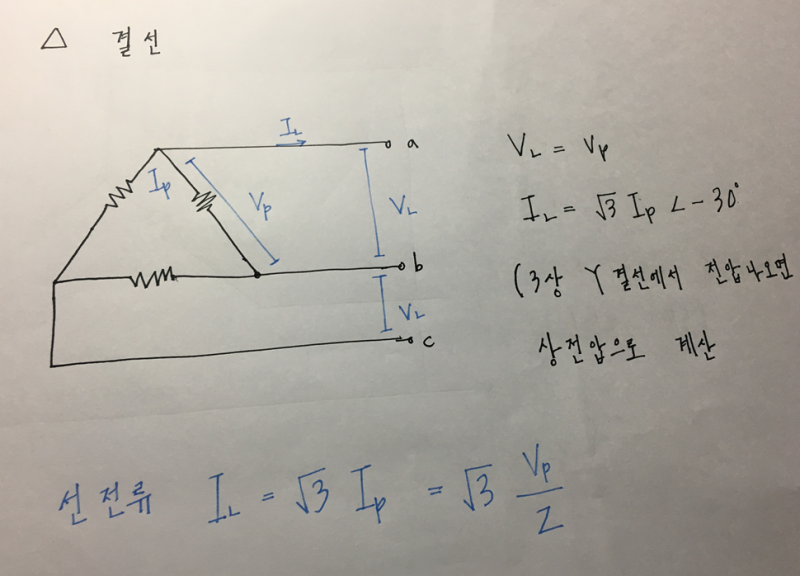 △ 결선
I_L
a
I_p
V_p
V_L
b
V_L
c
V_L = V_p
I_L = √3 I_p ∠ - 30°
(3상 Y 결선에서 전압나오면
상전압으로 계산
선전류 I_L = √3 I_p = √3 V_p / Z